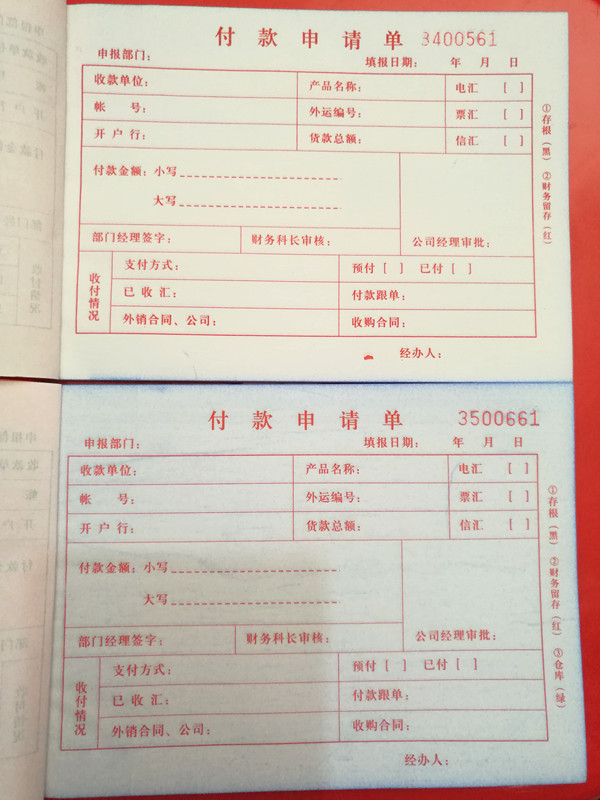 付款申请单 3400561
申报部门： 填报日期： 年 月 日
收款单位： 产品名称： 电汇 [ ]
帐 号： 外运编号： 票汇 [ ]
开 户 行： 货款总额： 信汇 [ ]
付款金额：小写
大写
部门经理签字： 财务科长审核： 公司经理审批：
收付情况
支付方式： 预付 [ ] 已付 [ ]
已 收 汇： 付款跟单：
外销合同、公司： 收购合同：
经办人：
①存根（黑） ②财务留存（红）
付款申请单 3500661
申报部门： 填报日期： 年 月 日
收款单位： 产品名称： 电汇 [ ]
帐 号： 外运编号： 票汇 [ ]
开 户 行： 货款总额： 信汇 [ ]
付款金额：小写
大写
部门经理签字： 财务科长审核： 公司经理审批：
收付情况
支付方式： 预付 [ ] 已付 [ ]
已 收 汇： 付款跟单：
外销合同、公司： 收购合同：
经办人：
①存根（黑） ②财务留存（红） ③仓库（绿）